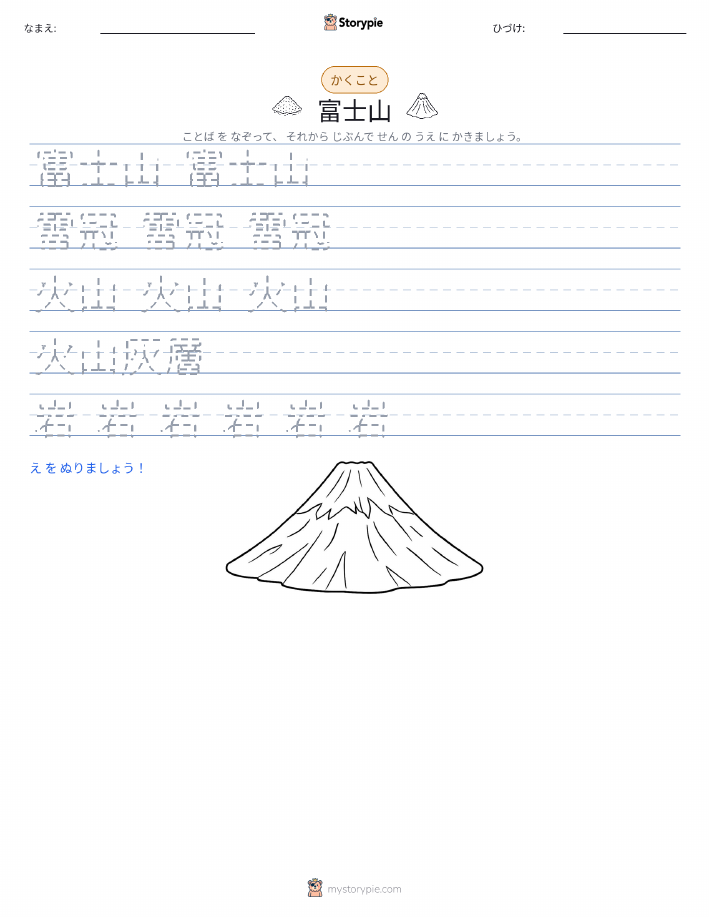 なまえ:
Storypie
ひづけ:
かくこと
富士山
ことば を なぞって、 それから じぶんで せん の うえ に かきましょう。
富士山 富士山
雪冠 雪冠 雪冠
火山 火山 火山
火山灰層
岩 岩 岩 岩 岩 岩
え を ぬりましょう！
mystorypie.com